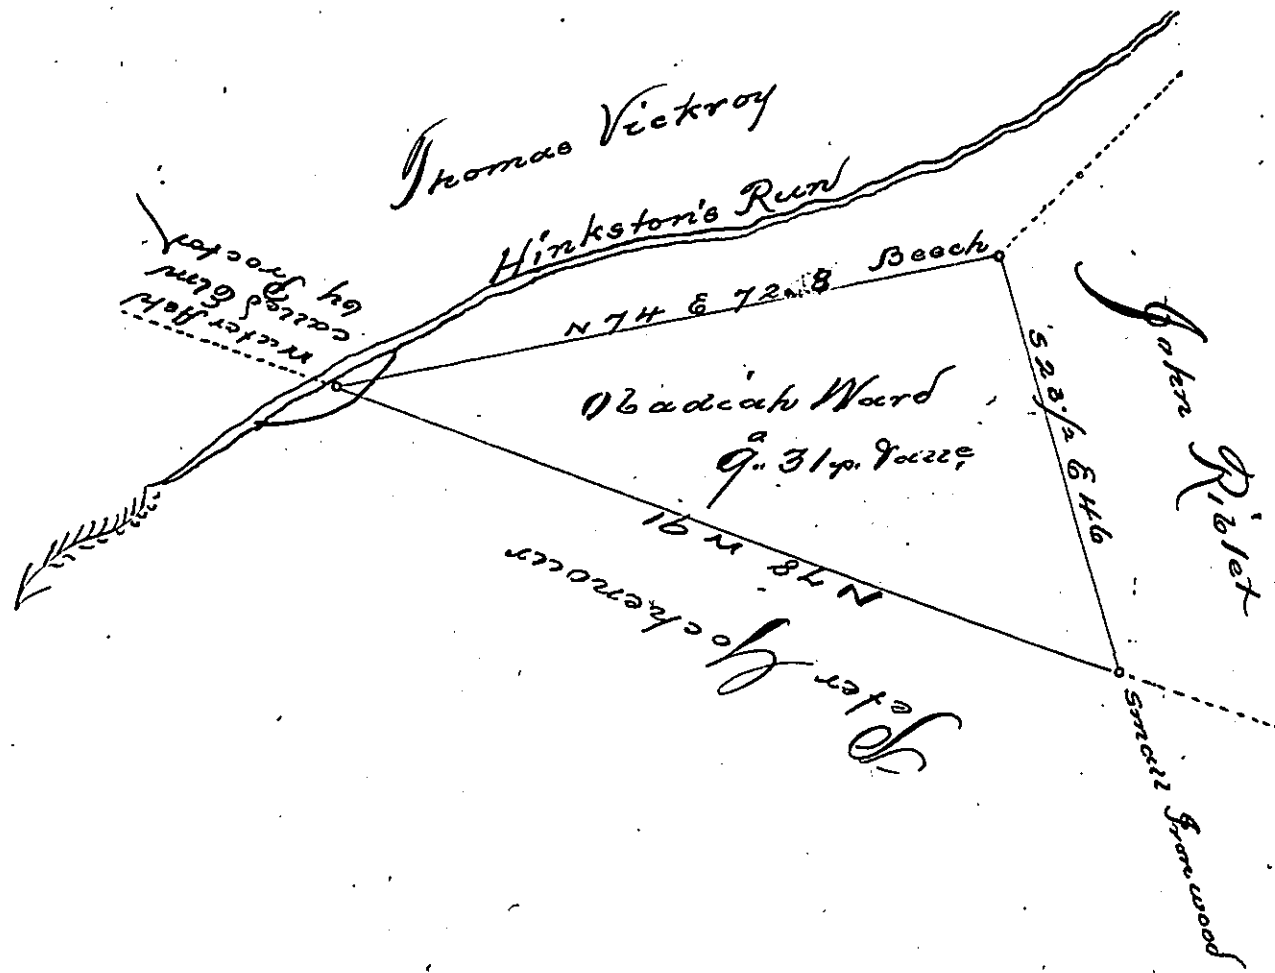 Thomas Vickroy
Hinkston's Run
Water Ash
called Elm
by Proctor
Beech
N 74 E 72.8
S 23 1/2 E 46
John Riblet
Obadiah Ward
9 a.. 31 p.
N 78 W 91
Peter Gochenour
Small Ironwood